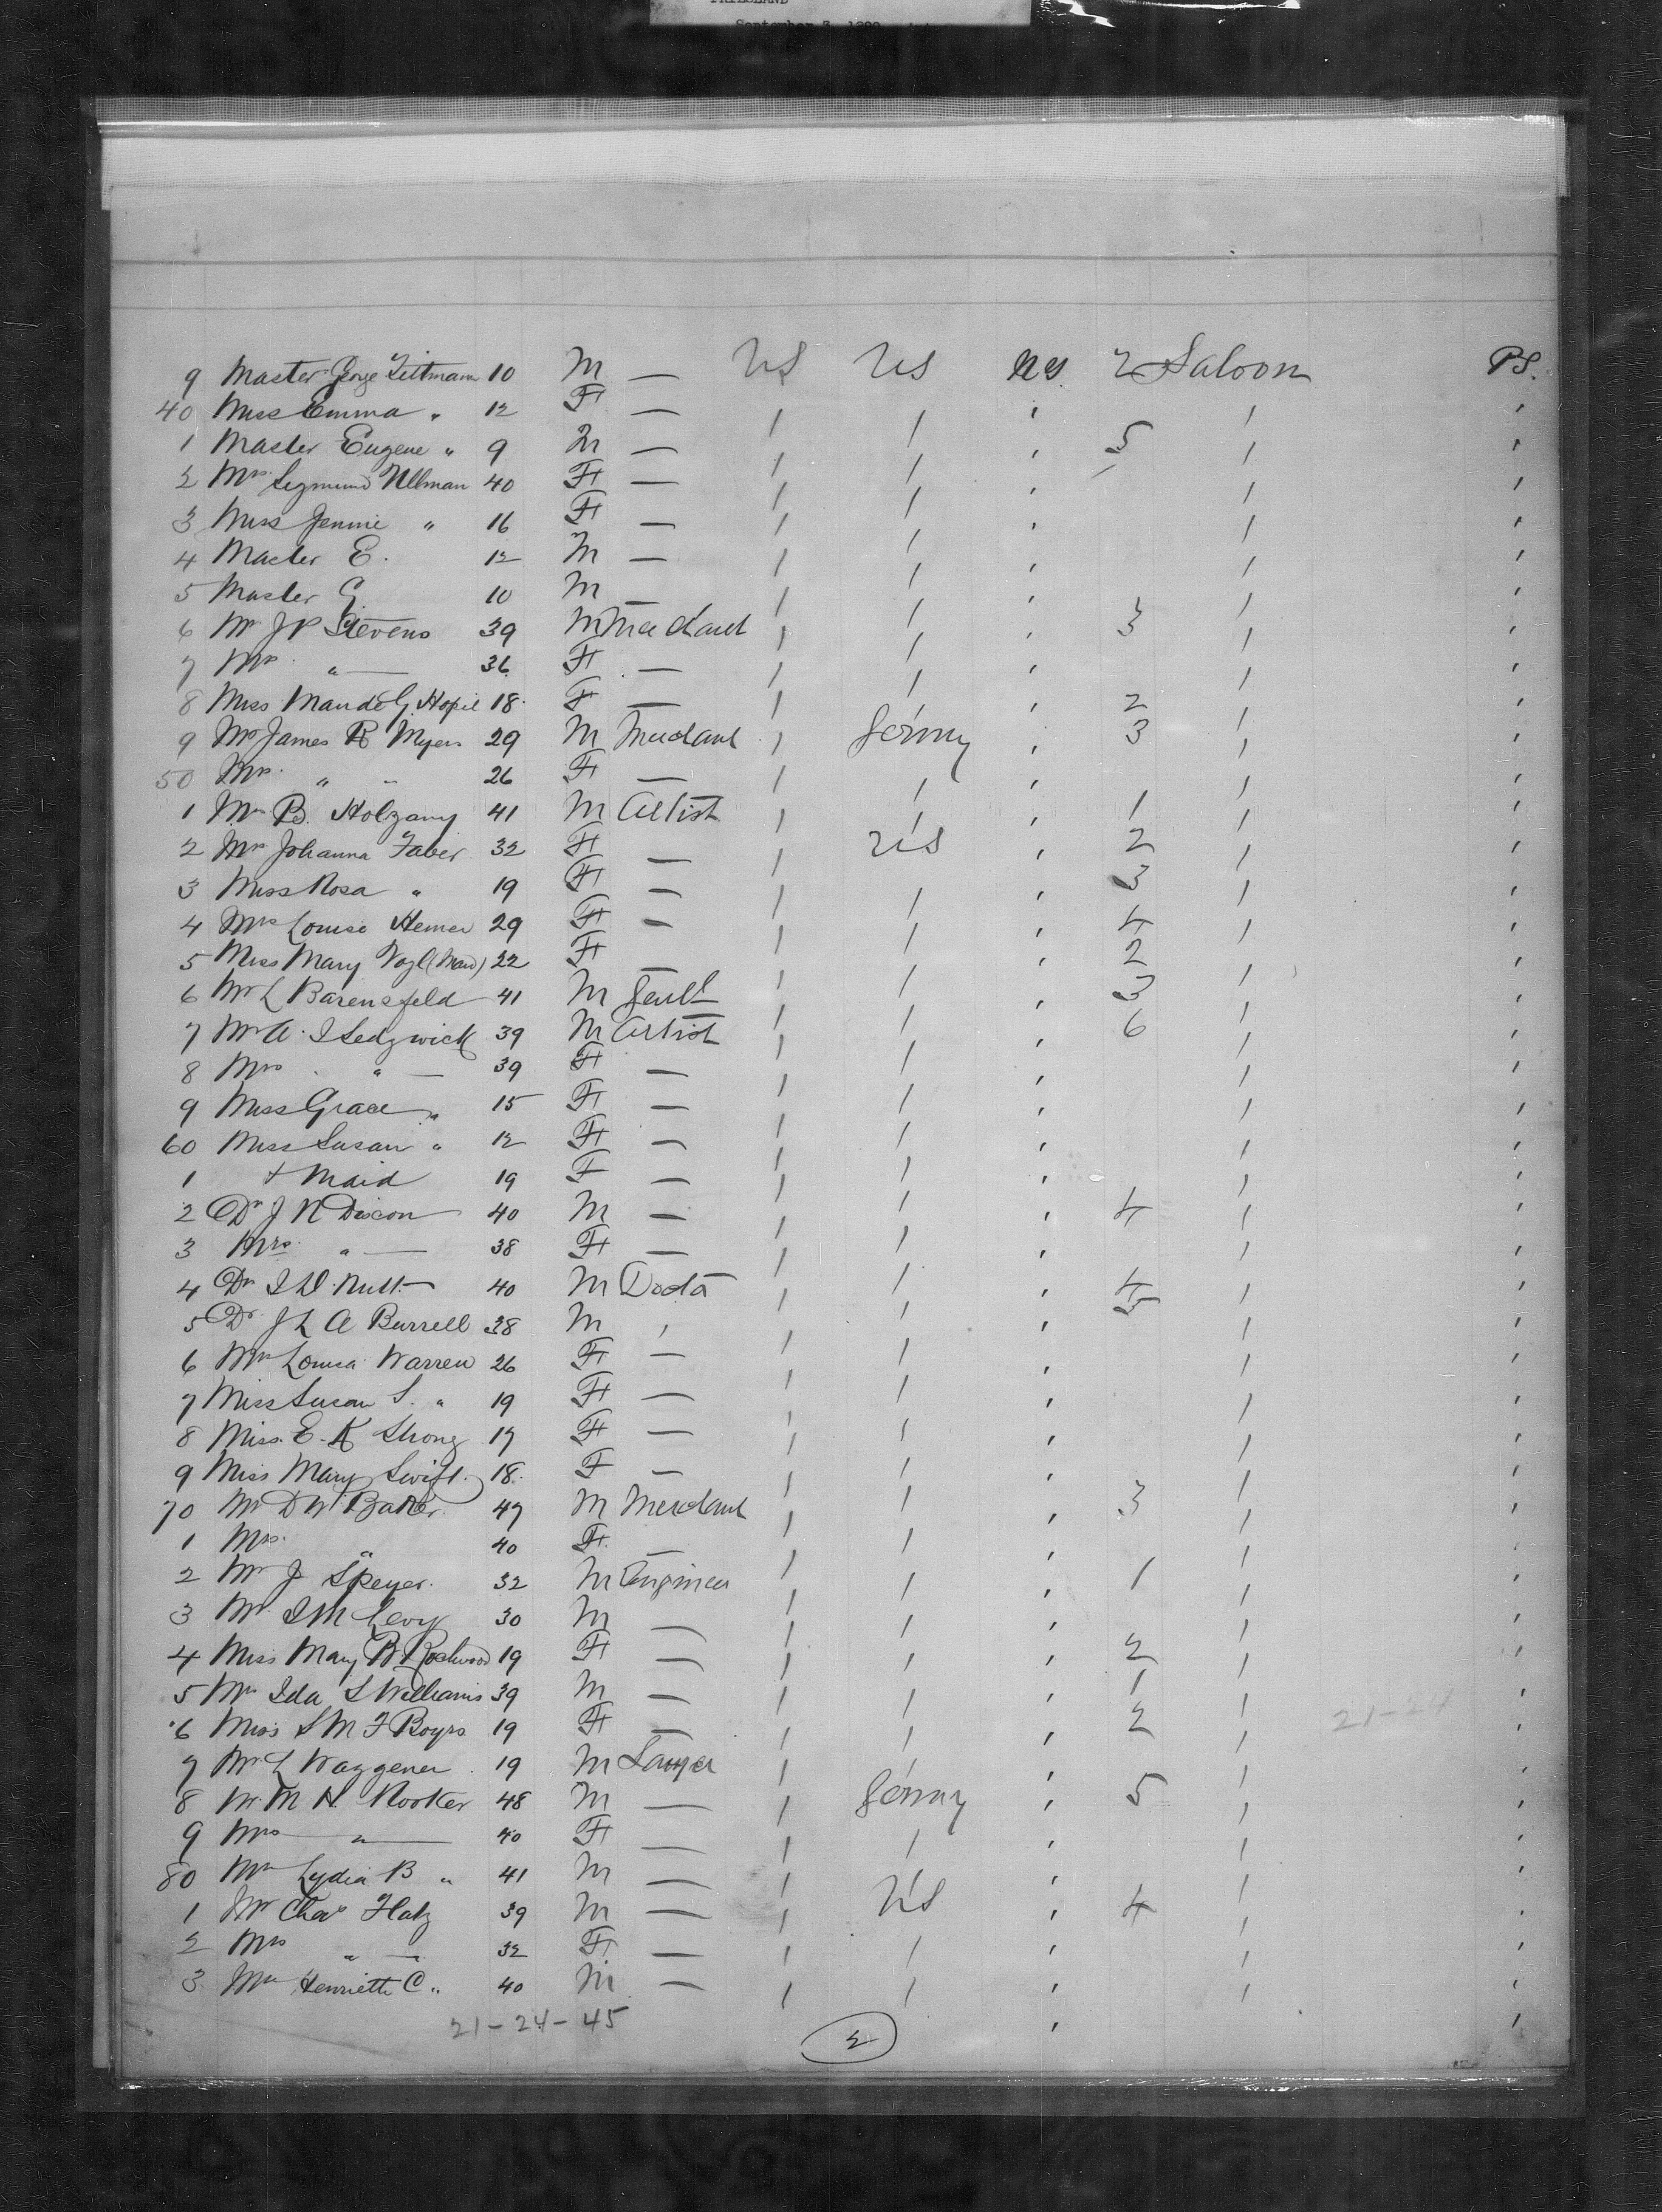 FRIESLAND
September 8, 1890
9 Master George Tittmann 10 M — US US NY 2 Saloon PS.
40 Miss Emma " 12 F —
1 Master Eugene " 9 M — 5
2 Mrs Sigmund Ullman 40 F —
3 Miss Jennie " 16 F —
4 Master E. 12 M —
5 Master G. 10 M —
6 Mr J P Stevens 39 M Merchant 3
7 Mrs " — 36 F —
8 Miss Maude G. 18 F — 2
9 Mr James R Myers 29 M Merchant Germy 3
50 Mrs " " 26 F —
1 Mr B. 41 M Artist 1
2 Mrs Johanna Faber 32 F — US 2
3 Miss Rosa " 19 F — 3
4 Mrs Louise 29 F — 4
5 Miss Mary Vogl (Maid) 22 F — 2
6 Mr L Barensfeld 41 M Gent 3
7 Mr A. I Sedgwick 39 M Artist 6
8 Mrs " — 39 F —
9 Miss Grace " 15 F —
60 Miss Susan " 12 F —
1 + Maid 19 F —
2 Dr J N Dixon 40 M — 4
3 Mrs " — 38 F —
4 Dr I D. Nutt 40 M Docto 4
5 Dr. J L A Burrell 38 M 5
6 Mrs Louisa Warren 26 F —
7 Miss Susan S. " 19 F —
8 Miss E. K Strong 17 F —
9 Miss Mary Swift 18 F —
70 Mr D W Baker 47 M Merchant 3
1 Mrs " 40 F —
2 Mr J Speyer 32 M Engineer 1
3 Mr I M Levy 30 M —
4 Miss Mary B Rockwood 19 F — 2
5 Mrs Ida S Williams 39 M — 1
6 Miss S M F Boyrs 19 F — 2 21-24
7 Mr L Waggener 19 M Lawyer
8 Mr. M H Rooker 48 M — Germy 5
9 Mrs " — 40 F —
80 Mrs Lydia B " 41 M —
1 Mr Chas 39 M — US 4
2 Mrs " — 32 F —
3 Mrs Henriette C. " 40 M —
21-24-45
2